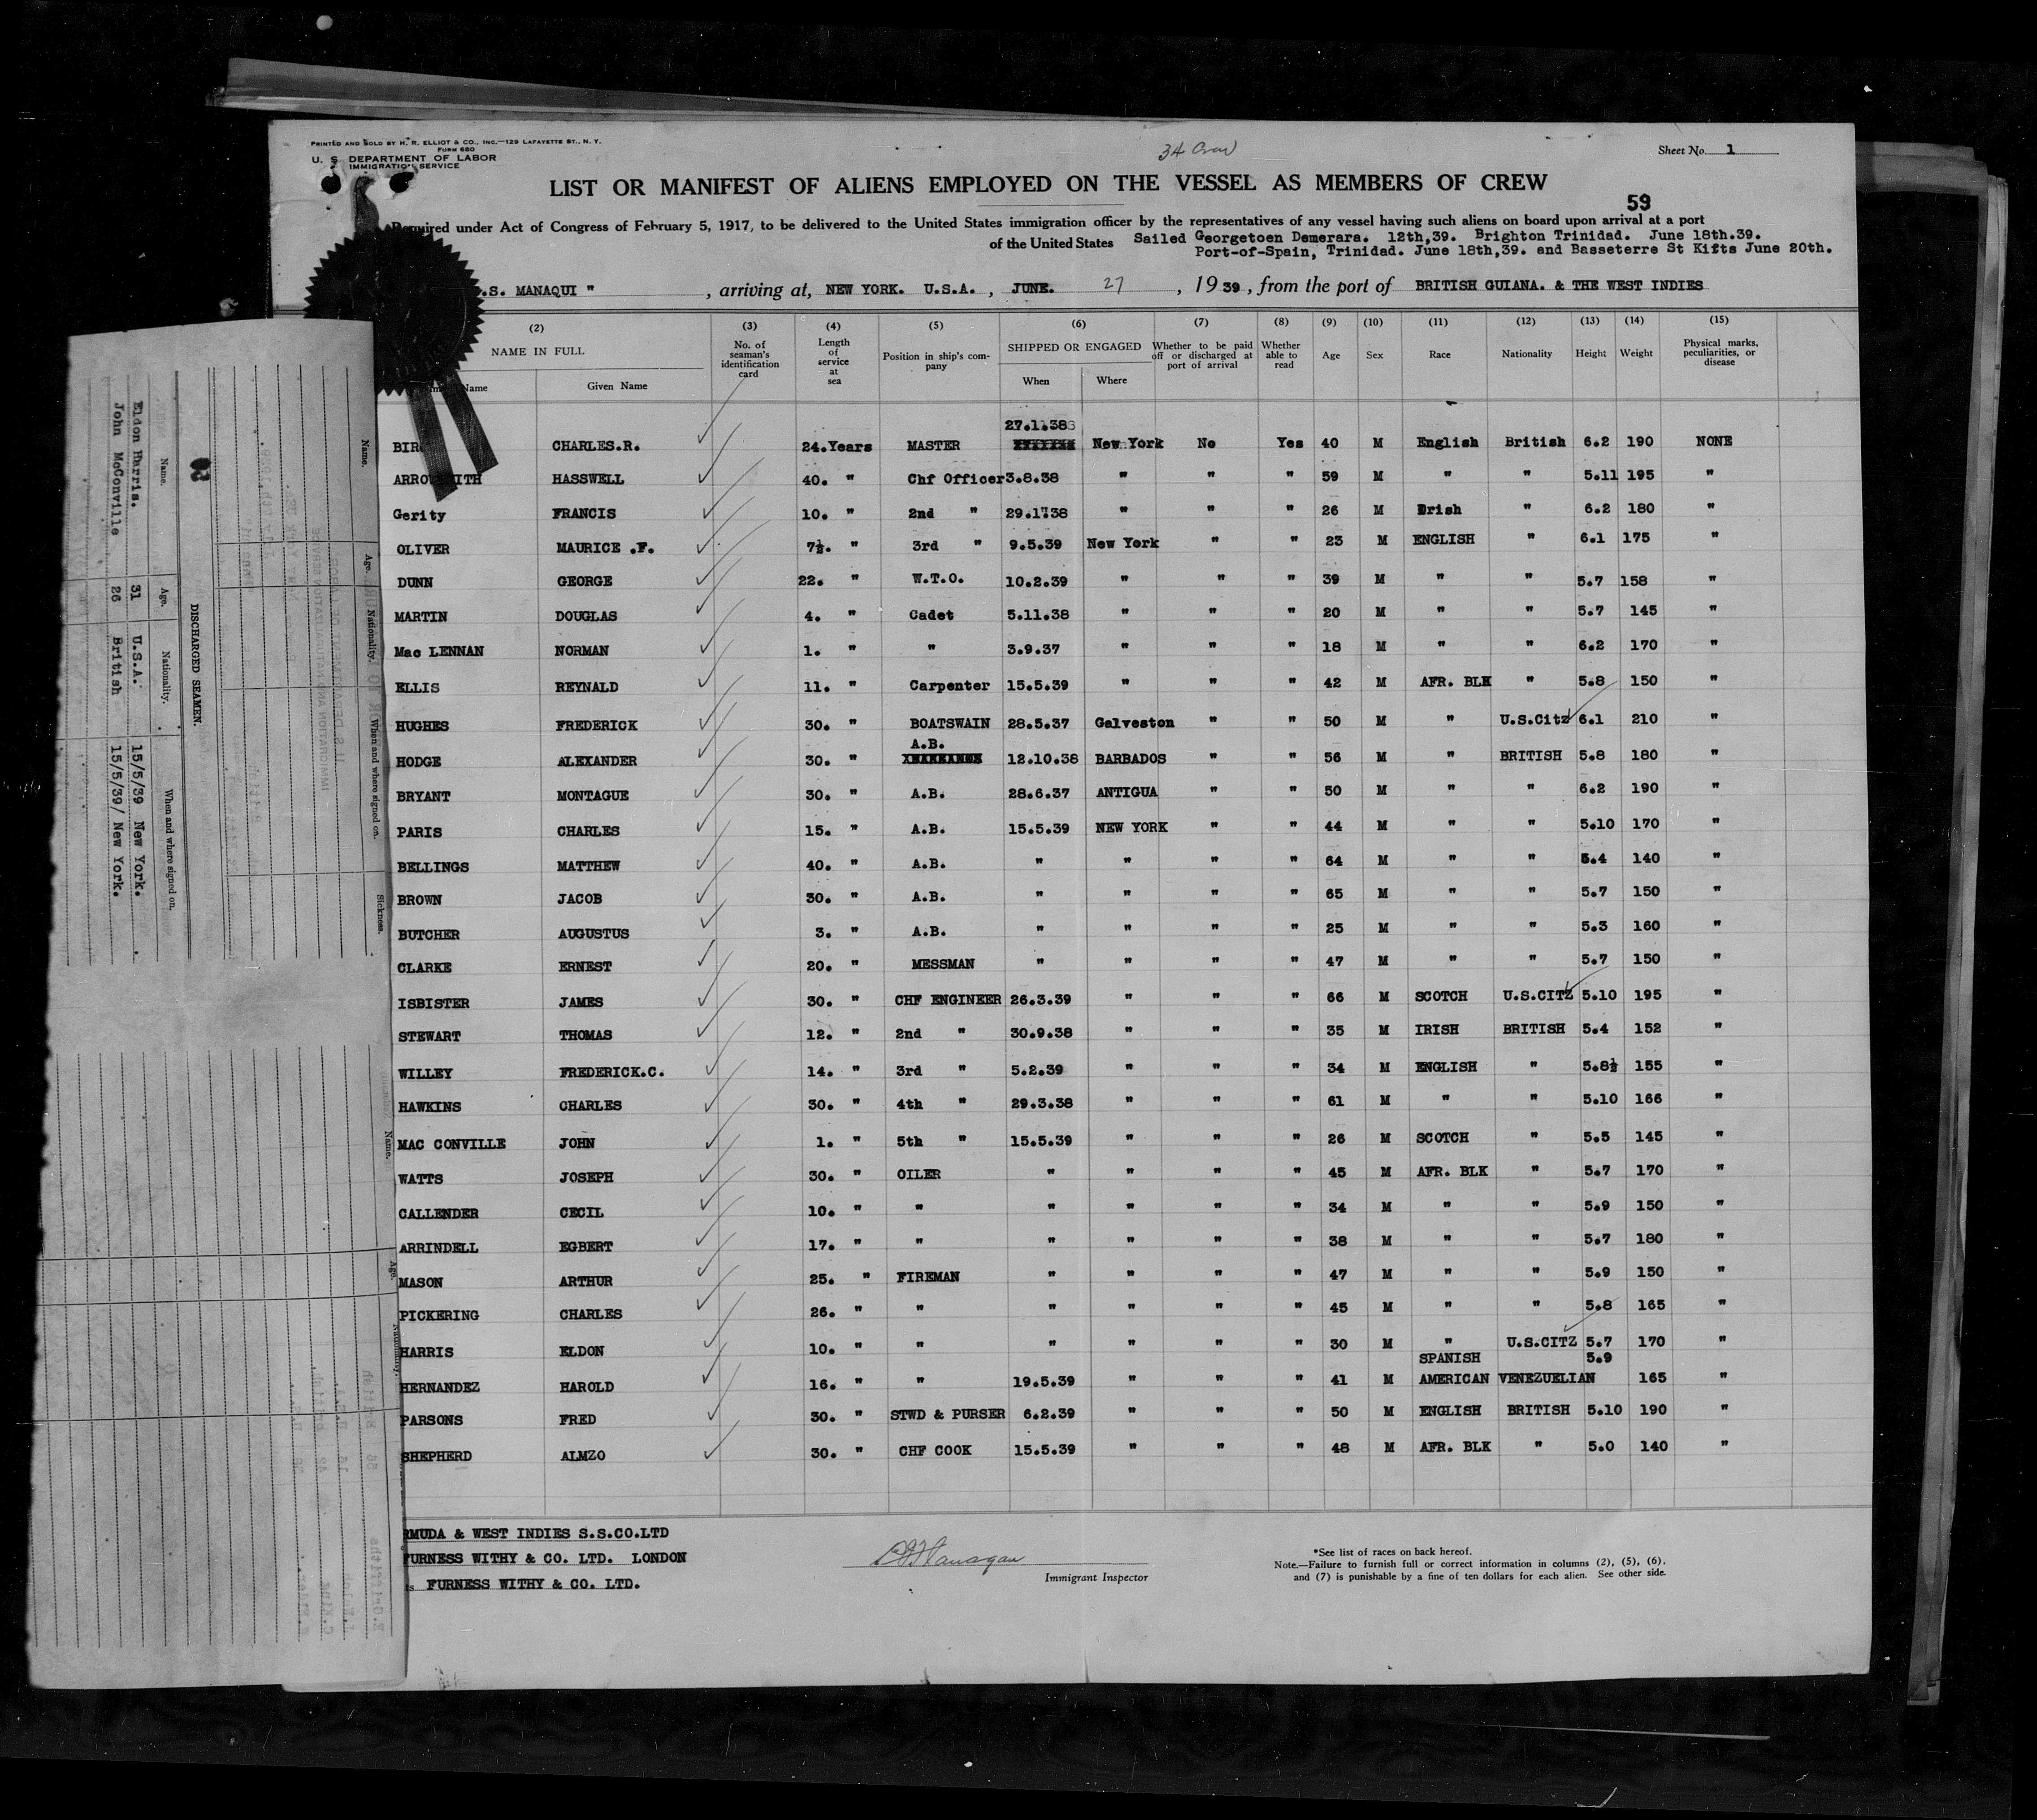 PRINTED AND SOLD BY H. R. ELLIOT & CO., INC.—129 LAFAYETTE ST., N. Y.
FORM 680
U. S. DEPARTMENT OF LABOR
IMMIGRATION SERVICE
34 Crew
Sheet No. 1
LIST OR MANIFEST OF ALIENS EMPLOYED ON THE VESSEL AS MEMBERS OF CREW
59
Required under Act of Congress of February 5, 1917, to be delivered to the United States immigration officer by the representatives of any vessel having such aliens on board upon arrival at a port
of the United States Sailed Georgetoen Demerara. 12th,39. Brighton Trinidad. June 18th.39.
Port-of-Spain, Trinidad. June 18th,39. and Basseterre St Kitts June 20th.
.S. MANAQUI " , arriving at, NEW YORK. U.S.A. , JUNE. 27 , 19 39 , from the port of BRITISH GUIANA. & THE WEST INDIES
(2) (3) (4) (5) (6) (7) (8) (9) (10) (11) (12) (13) (14) (15)
NAME IN FULL No. of seaman's identification card Length of service at sea Position in ship's company SHIPPED OR ENGAGED Whether to be paid off or discharged at port of arrival Whether able to read Age Sex Race Nationality Height Weight Physical marks, peculiarities, or disease
Name Given Name When Where
27.1.38
BIR CHARLES.R. 24.Years MASTER New York No Yes 40 M English British 6.2 190 NONE
ARROWSMITH HASSWELL 40. " Chf Officer 3.8.38 " " " 59 M " " 5.11 195 "
Gerity FRANCIS 10. " 2nd " " " " 26 M Irish " 6.2 180 "
OLIVER MAURICE .F. 7½. " 3rd " 9.5.39 New York " " 23 M ENGLISH " 6.1 175 "
DUNN GEORGE 22. " W.T.O. 10.2.39 " " " 39 M " " 5.7 158 "
MARTIN DOUGLAS 4. " Cadet 5.11.38 " " " 20 M " " 5.7 145 "
Mac LENNAN NORMAN 1. " " 3.9.37 " " " 18 M " " 6.2 170 "
ELLIS REYNALD 11. " Carpenter 15.5.39 " " " 42 M AFR. BLK " 5.8 150 "
HUGHES FREDERICK 30. " BOATSWAIN 28.5.37 Galveston " " 50 M " U.S.Citz 6.1 210 "
A.B.
HODGE ALEXANDER 30. " 12.10.38 BARBADOS " " 56 M " BRITISH 5.8 180 "
BRYANT MONTAGUE 30. " A.B. 28.6.37 ANTIGUA " " 50 M " " 6.2 190 "
PARIS CHARLES 15. " A.B. 15.5.39 NEW YORK " " 44 M " " 5.10 170 "
BELLINGS MATTHEW 40. " A.B. " " " " 64 M " " 5.4 140 "
BROWN JACOB 30. " A.B. " " " " 65 M " " 5.7 150 "
BUTCHER AUGUSTUS 3. " A.B. " " " " 25 M " " 5.3 160 "
CLARKE ERNEST 20. " MESSMAN " " " " 47 M " " 5.7 150 "
ISBISTER JAMES 30. " CHF ENGINEER 26.3.39 " " " 66 M SCOTCH U.S.CITZ 5.10 195 "
STEWART THOMAS 12. " 2nd " 30.9.38 " " " 35 M IRISH BRITISH 5.4 152 "
WILLEY FREDERICK.C. 14. " 3rd " 5.2.39 " " " 34 M ENGLISH " 5.8½ 155 "
HAWKINS CHARLES 30. " 4th " 29.3.38 " " " 61 M " " 5.10 166 "
MAC CONVILLE JOHN 1. " 5th " 15.5.39 " " " 26 M SCOTCH " 5.5 145 "
WATTS JOSEPH 30. " OILER " " " " 45 M AFR. BLK " 5.7 170 "
CALLENDER CECIL 10. " " " " " " 34 M " " 5.9 150 "
ARRINDELL EGBERT 17. " " " " " " 38 M " " 5.7 180 "
MASON ARTHUR 25. " FIREMAN " " " " 47 M " " 5.9 150 "
PICKERING CHARLES 26. " " " " " " 45 M " " 5.8 165 "
HARRIS ELDON 10. " " " " " " 30 M " U.S.CITZ 5.7 170 "
SPANISH 5.9
HERNANDEZ HAROLD 16. " " 19.5.39 " " " 41 M AMERICAN VENEZUELIAN 165 "
PARSONS FRED 30. " STWD & PURSER 6.2.39 " " " 50 M ENGLISH BRITISH 5.10 190 "
SHEPHERD ALMZO 30. " CHF COOK 15.5.39 " " " 48 M AFR. BLK " 5.0 140 "
RMUDA & WEST INDIES S.S.CO.LTD
FURNESS WITHY & CO. LTD. LONDON
FURNESS WITHY & CO. LTD.
Immigrant Inspector
*See list of races on back hereof.
Note.—Failure to furnish full or correct information in columns (2), (5), (6),
and (7) is punishable by a fine of ten dollars for each alien. See other side.
DISCHARGED SEAMEN.
Name. Age. Nationality. When and where signed on.
Eldon Harris. 31 U.S.A. 15/5/39 New York.
John McConville 26 British 15/5/39/ New York.
Name. Age. Nationality. When and where signed on. Sickness.
Name.
Age.
Nationality.